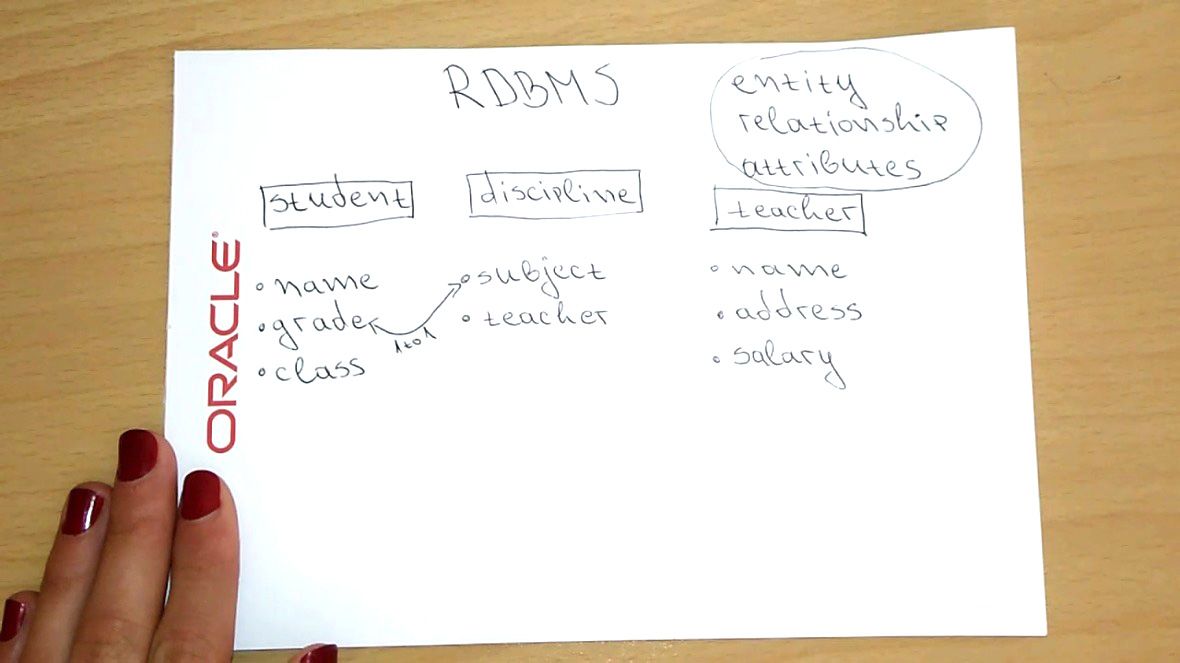 RDBMS
entity
relationship
attributes
student
discipline
teacher
• name
• grade
• class
1 to 1
• subject
• teacher
• name
• address
• salary
ORACLE®